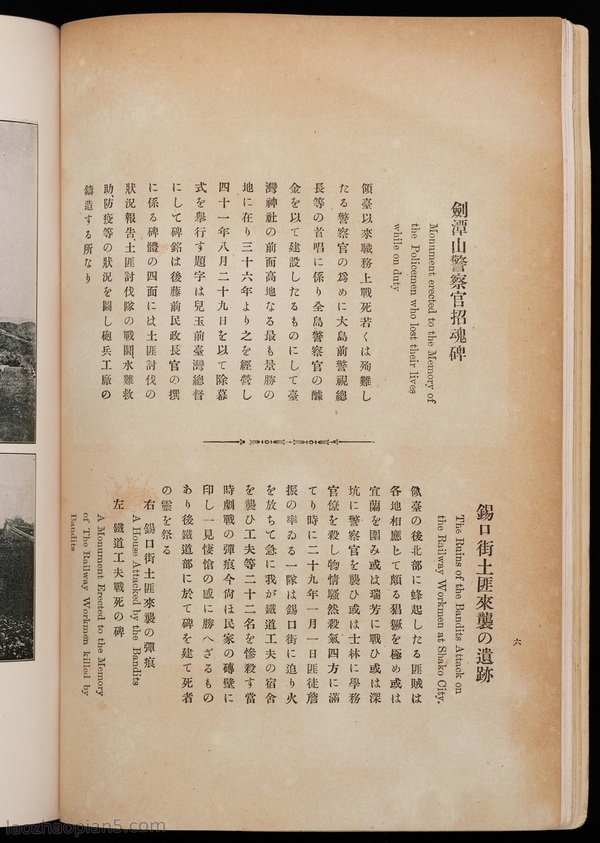 劍潭山警察官招魂碑
Monument erected to the Memory of
the Policemen who lost their lives
while on duty
領臺以來職務上戰死若くは殉難し
たる警察官の爲めに大島前警視總
長等の首唱に係り全島警察官の醵
金を以て建設したるものにして臺
灣神社の前面高地なる最も景勝の
地に在り三十六年より之を經營し
四十一年八月二十九日を以て除幕
式を舉行す題字は兒玉前臺灣總督
にして碑銘は後藤前民政長官の撰
に係る碑體の四面には土匪討伐の
狀況報告、土匪討伐隊の戰鬪、水難救
助防疫等の狀況を圖し砲兵工廠の
鑄造する所なり
錫口街土匪來襲の遺跡
The Ruins of the Bandits Attack on
the Railway Workmen at Shako City.
領臺の後北部に蜂起したる匪賊は
各地相應じて頗る猖獗を極め或は
宜蘭を圍み或は瑞芳に戰ひ或は深
坑に警察官を襲ひ或は士林に學務
官僚を殺し物情騷然殺氣四方に滿
てり時に二十九年一月一日匪徒詹
振の率ゐる一隊は錫口街に迫り火
を放ちて急に我が鐵道工夫の宿舍
を襲ひ工夫等二十二名を慘殺す當
時劇戰の彈痕今尙ほ民家の磚壁に
印し一見悽愴の感に勝へざるもの
あり後鐵道部に於て碑を建て死者
の靈を祭る
右 錫口街土匪來襲の彈痕
A House Attacked by the Bandits
左 鐵道工夫戰死の碑
A Monument Erected to the Memory
of The Railway Workmen killed by
Bandits
六
laozhaopian5.com